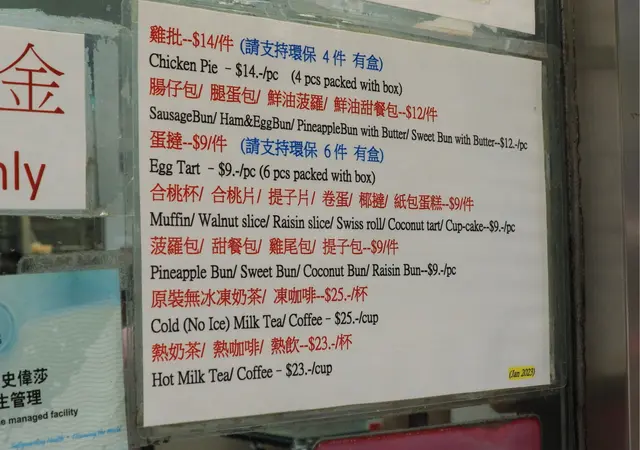 金
nly
雞批--$14/件 (請支持環保 4 件 有盒)
Chicken Pie - $14.-/pc (4 pcs packed with box)
腸仔包/ 腿蛋包/ 鮮油菠羅/ 鮮油甜餐包--$12/件
SausageBun/ Ham&EggBun/ PineappleBun with Butter/ Sweet Bun with Butter--$12.-/pc
蛋撻--$9/件 (請支持環保 6 件 有盒)
Egg Tart - $9.-/pc (6 pcs packed with box)
合桃杯/ 合桃片/ 提子片/ 卷蛋/ 椰撻/ 紙包蛋糕--$9/件
Muffin/ Walnut slice/ Raisin slice/ Swiss roll/ Coconut tart/ Cup-cake--$9.-/pc
菠羅包/ 甜餐包/ 雞尾包/ 提子包--$9/件
Pineapple Bun/ Sweet Bun/ Coconut Bun/ Raisin Bun--$9.-/pc
原裝無冰凍奶茶/ 凍咖啡--$25.-/杯
Cold (No Ice) Milk Tea/ Coffee - $25.-/cup
熱奶茶/ 熱咖啡/ 熱飲--$23.-/杯
Hot Milk Tea/ Coffee - $23.-/cup
(Jan 2023)
史偉莎
生管理
e managed facility
Safeguarding Health • Cleaning the World